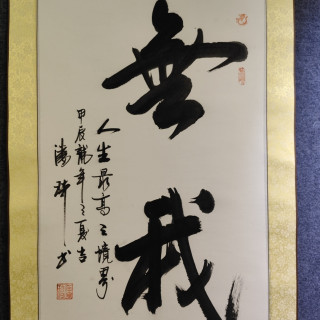 無我
人生最高之境界
甲辰龍年之夏吉
书